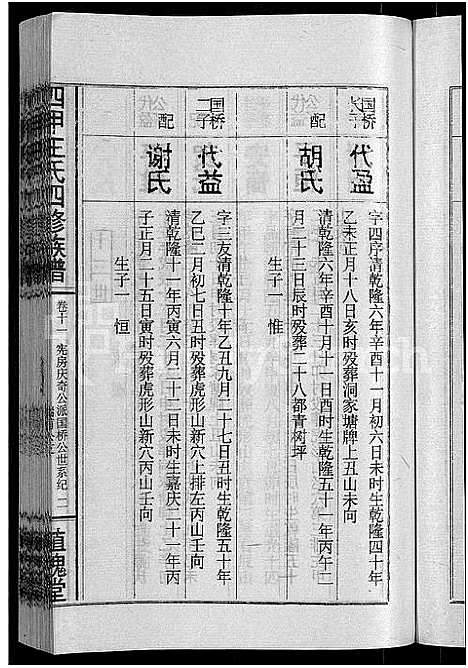 国桥长子
代盈
字四序清乾隆六年辛酉十一月初六日未时生乾隆四十年
乙未正月十八日亥时殁葬洞家塘牌上丑山未向
公配
胡氏
清乾隆六年辛酉十月十一日丑时生乾隆五十一年丙午二
月二十三日辰时殁葬二十八都青树坪
生子一 惟
国桥二子
代益
字三友清乾隆十年乙丑九月二十七日丑时生乾隆五十年
乙巳二月初七日丑时殁葬虎形山新穴上排左丙山壬向
公配
谢氏
清乾隆十一年丙寅六月二十二日未时生嘉庆二十一年丙
子正月二十五日寅时殁葬虎形山新穴丙山壬向
生子一 恒
四甲王氏四修族谱
卷十一 宪房庆奇公派国桥公世系纪
植槐堂